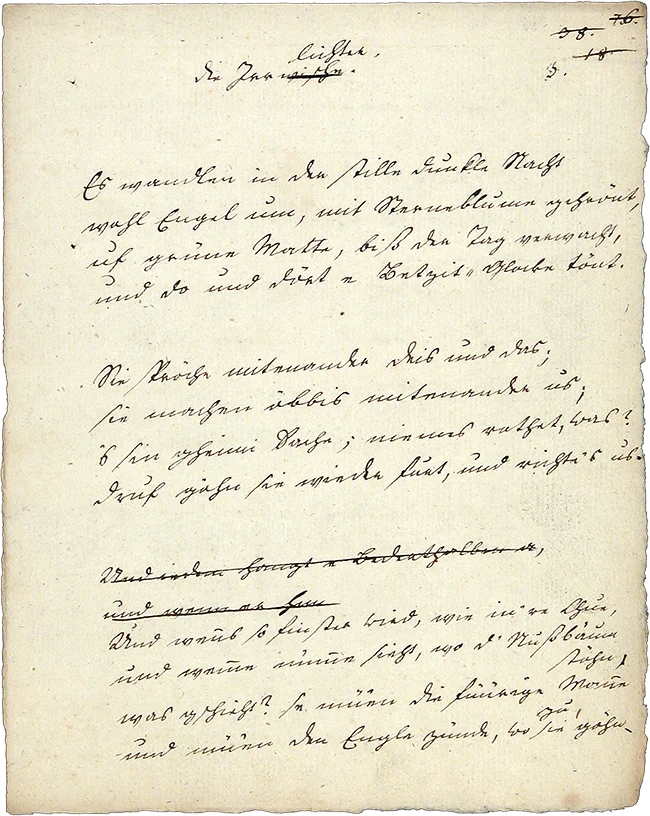 38. 76.
18
3.
lichter.
die Irrwische.
Es wandlen in der stille dunkle Nacht
wohl Engel um, mit Sterneblume gchrönt,
uf grüne Matte, biß der Tag verwacht,
und do und dört e Betzit-Glocke tönt.
Sie spröche mitenander deis und das;
sie machen öbbis mitenander us;
's sin gheimi Sache; niemes rothet, was?
druf göhn sie wieder furt, und richte's us.
Und iedem hangt e
und wenn er
Und wenns so finster wird, wie in're Chue,
und weme nüme sieht, wo d' Nußbäum
stöhn,
was gschieht? se müen die füürige Manne
zu,
und müen den Engle zünde, wo sie göhn.